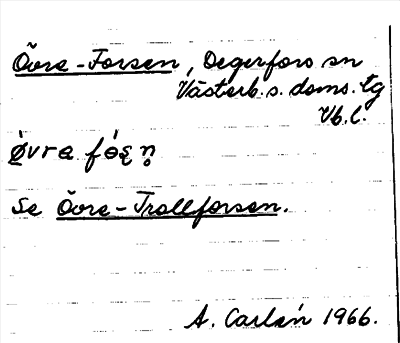 Övre-Forsen, Degerfors sn
Västerb.s. doms. tg
Vb.l.
ø̀vra fó̱s̨ n̥
Se Övre-Trollforsen.
A. Carlén 1966.